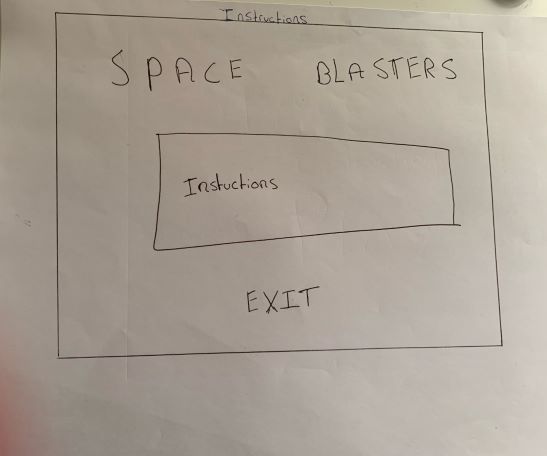 Instructions
SPACE BLASTERS
Instuctions
EXIT